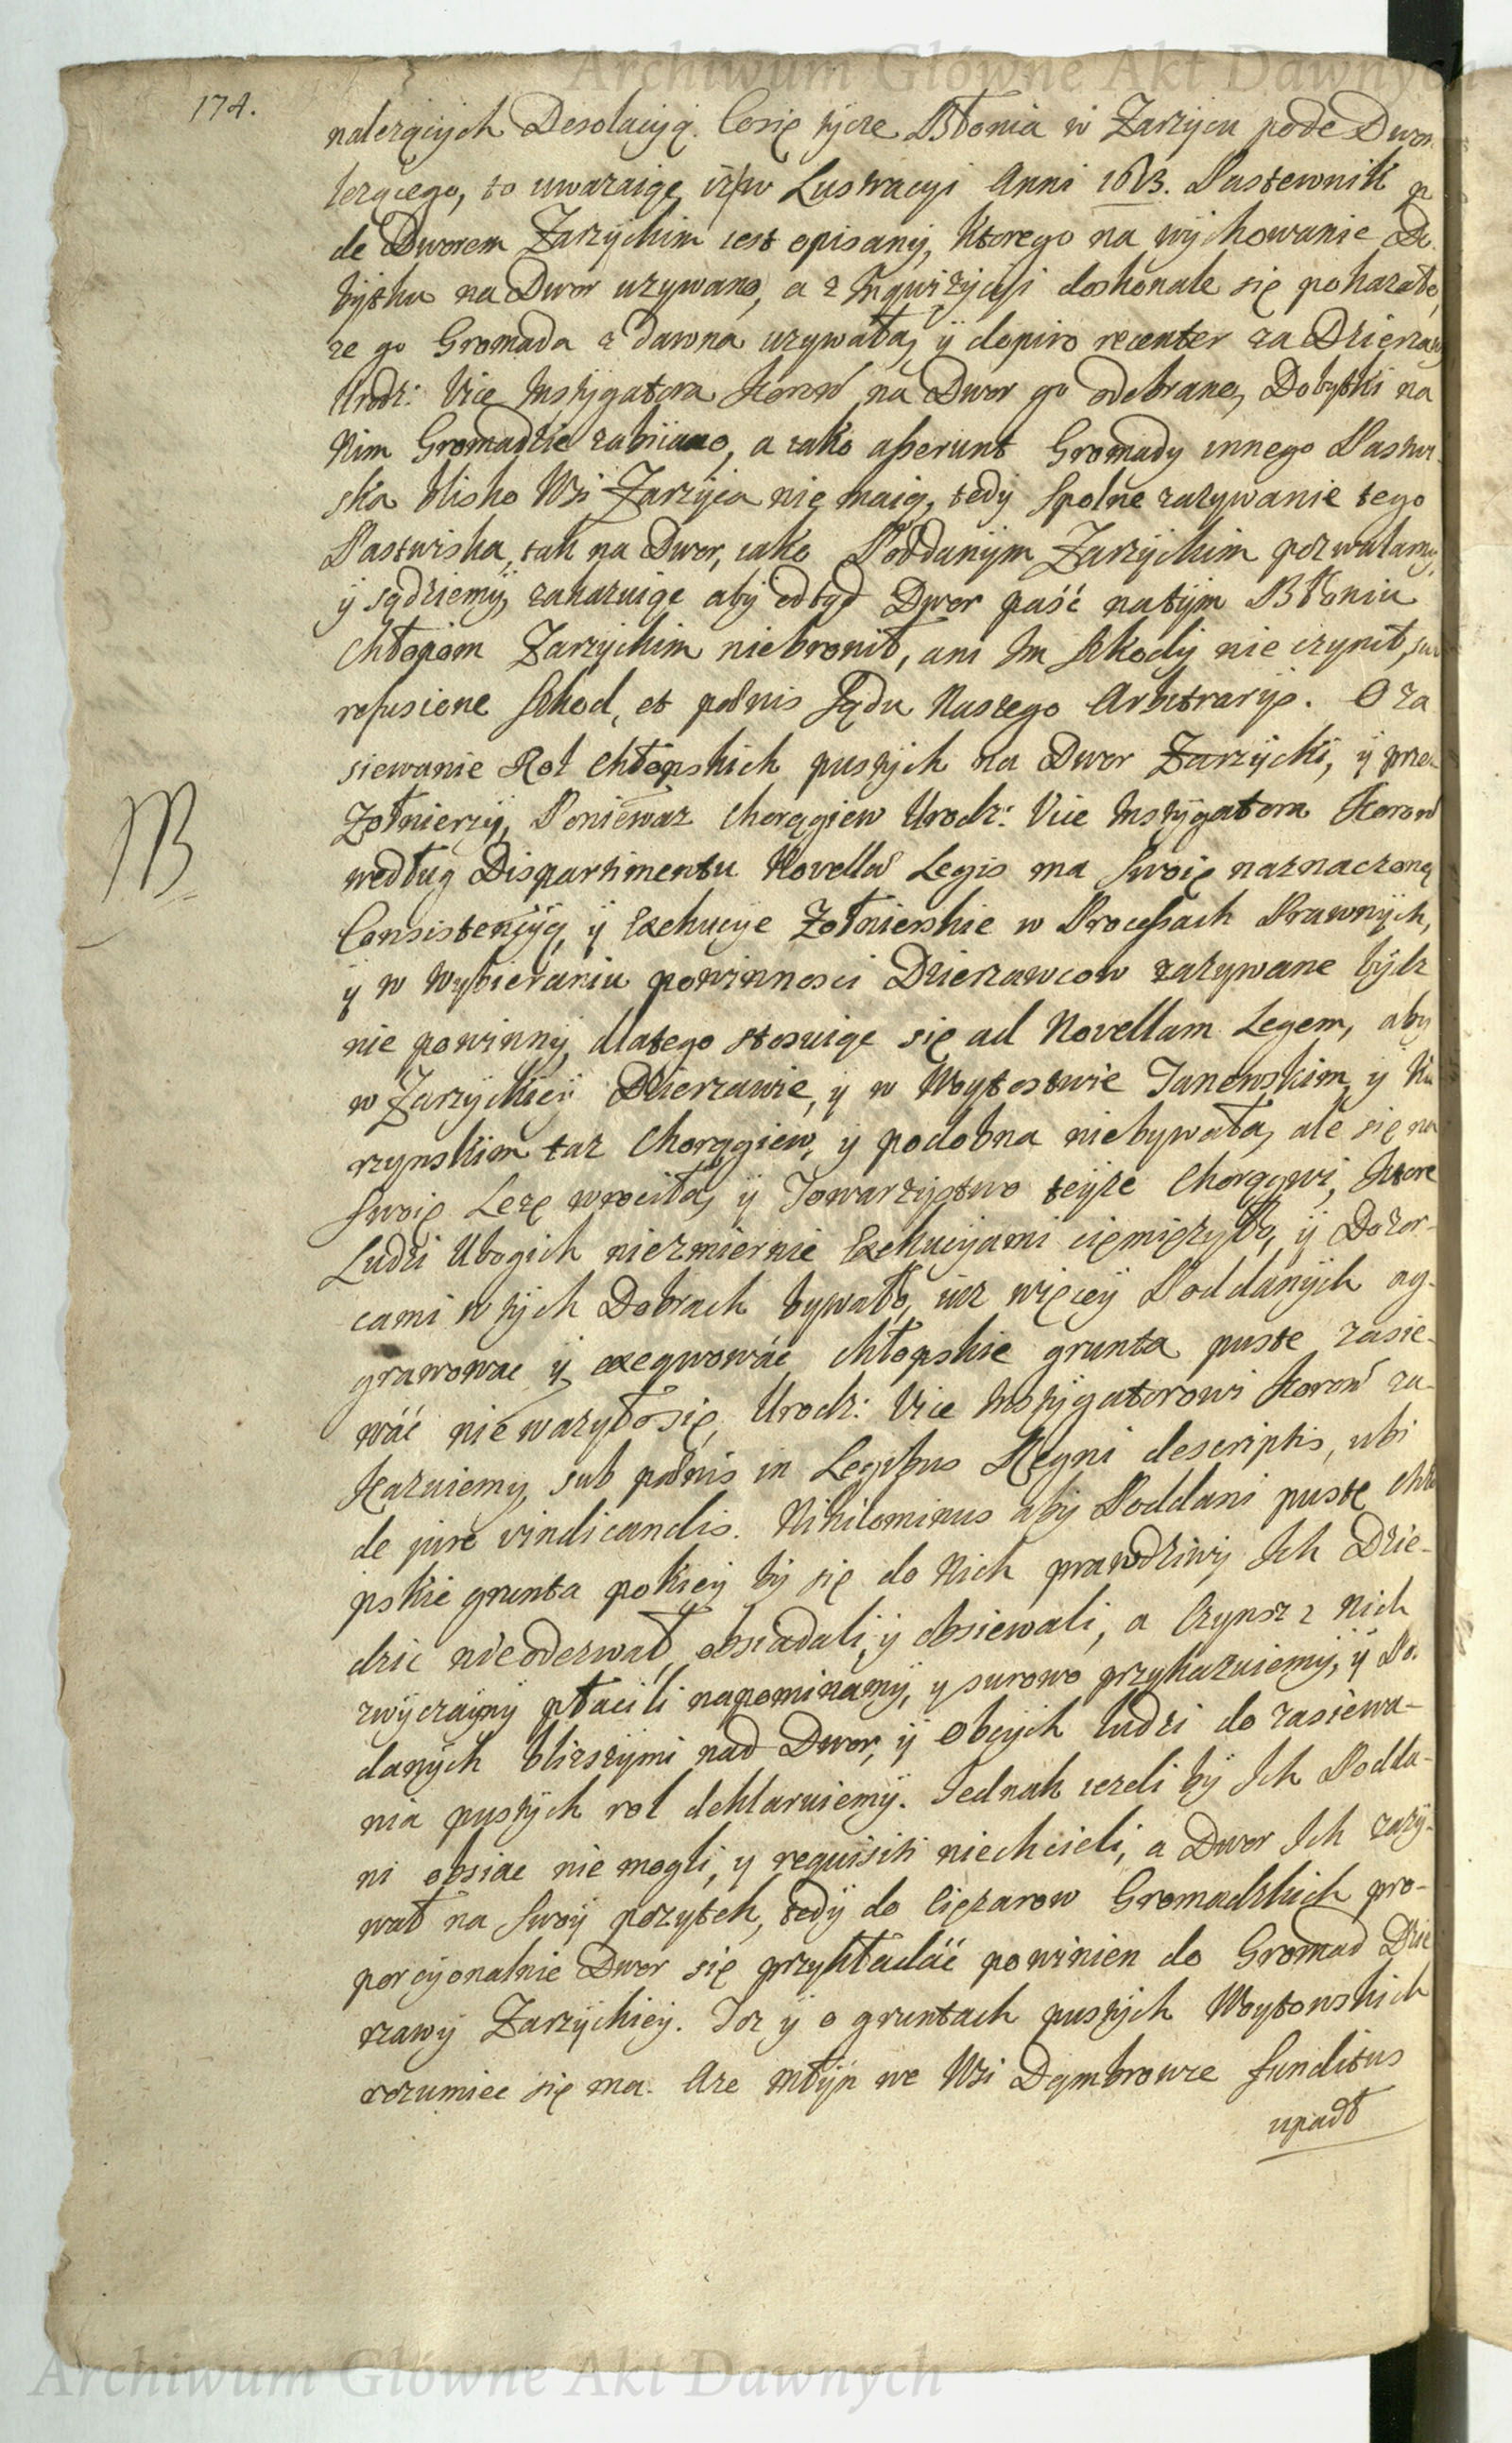 Archiwum Główne Akt Dawnych
174.
nalezących Desolacyją. Cosię tycze Błonia w Zarzycu pode Dwor
lezącego, to uwazaiąc, iz w Lustracyi Anni 1673. Pastewnik p
de Dworem Zarzyckim iest opisany, ktorego na wychowanie Do
bytku na Dwor uzywano, a z Inqwizycyi doskonale się pokazało
ze go Gromada z dawna uzywała, ÿ dopiro recenter za Dzierzawy
Urodz: Vice Instygatora Koron na Dwor go odebrano, Dobytki na
Nim Gromadzkie zabiiano, a iako asserunt Gromady innego Pastwi
ska blisko Wsi Zarzyca nie maią, tedy spolne zazywanie tego
Pastwiska, tak na Dwor, iako Poddanym Zarzyckim pozwalamy,
ÿ sądziemy, zakazuiąc aby odtąd Dwor paść natym Błoniu
Chłopom Zarzyckim niebronił, ani Im szkody nie czynił, sub
refusione szkod, et pœnis Sądu Naszego Arbitrarijs. O za
siewanie Rol Chłopskich pustych na Dwor Zarzycki, ÿ przez
Zołnierzy, Poniewaz Chorągiew Urodz: Vice Instygatora Koron
NB
według Dispartimentu Novellæ Legis ma swoię naznaczoną
Consistencyą, ÿ Exekucye Zołnierskie w Processach Prawnych,
ÿ w wybieraniu powinnosci Dzierzawcow zazywane bydz
nie powinny, dlatego stosuiąc się ad Novellam Legem, aby
w Zarzyckiey Dzierzawie, ÿ w Woytostwie Janowskim, ÿ Ku
rzynskim taz Chorągiew, ÿ podobna niebywała, ale się na
swoię Lezę wrociła, ÿ Towarzystwo teyze Chorągwi, ktore
Ludzi Ubogich niezmiernie Exekucyjami ciemięzyło, ÿ Dozor-
cami w tych Dobrach bywało, iuz więcey Poddanych ag-
grawowac ÿ exeqwowác, chłopskie grunta puste zasie-
wác niewazyło się, Urodz: Vice Instygatorowi Koron za-
kazuiemy, sub pœnis in Legibus Regni descriptis, ubi
de jure vindicandis. Nihilominus aby Poddani puste chło
pskie grunta pokiey by się do Nich prawdziwy Ich Dzie-
dzic nieodezwał, obsiadali, ÿ obsiewali, a Czynsz z Nich
zwyczayny płacili napominamy, y surowo przykazuiemy, ÿ Po
danych blizszymi nad Dwor, ÿ obcych ludzi do zasiewa-
nia pustych rol deklaruiemy. Jednak iezeli by Ich Podda-
ni obsiac nie mogli, y requisiti niechcieli, a Dwor Ich zazy-
wał na swoy pozytek, tedy do Cięzarow Gromadzkich pro-
porcyonalnie Dwor się przykładáć powinien do Gromad Dzie
rzawy Zarzyckiey. Toz ÿ o gruntach pustych Woytowskich
rozumiec się ma. Aze Młyn we Wsi Dąmbrowce funditus
upadł
Archiwum Główne Akt Dawnych